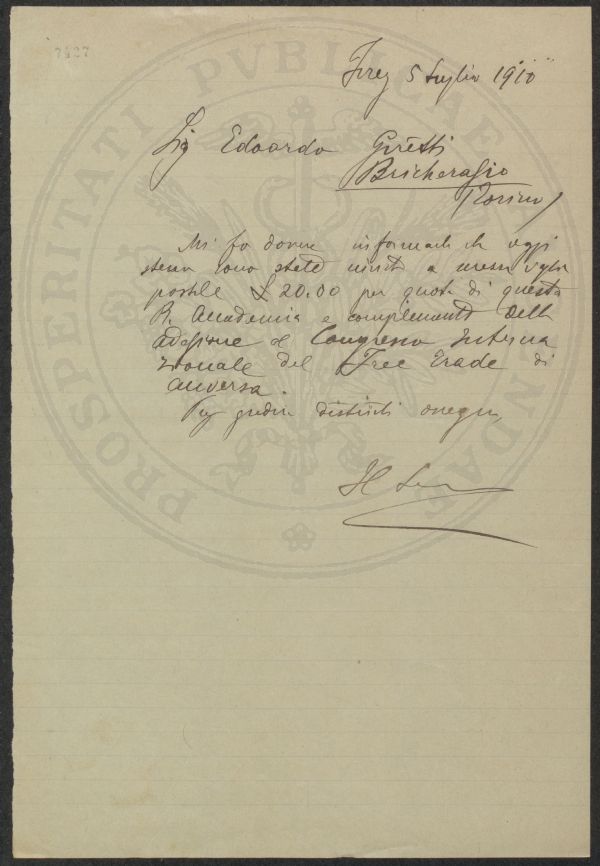 7427
PROSPERITATI PVBLICAE AVGENDAE
5 Luglio 1910
Sig Edoardo Giretti
Bricherasio
Torino
Mi fo dovere informarla che oggi
stesso sono state inviate a mezzo vaglia
postale £ 20.00 per quota di questa
R. Accademia e complemento della
adesione al Congresso Interna
zionale del Free Trade di
Anversa.
distinti ossequi
Il